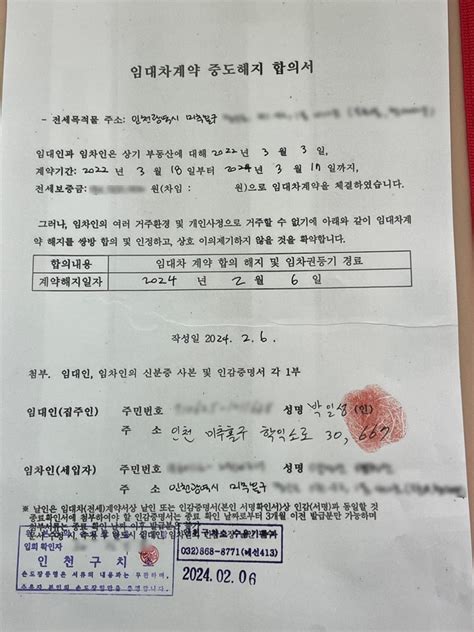 임대차계약 중도해지 합의서
- 전세목적물 주소: 인천광역시 미추홀구
임대인과 임차인은 상기 부동산에 대해 2022 년 3 월 3 일,
계약기간: 2022 년 3 월 18 일부터 2024 년 3 월 17 일까지,
전세보증금: 원(차임 : 원)으로 임대차계약을 체결하였습니다.
그러나, 임차인의 여러 거주환경 및 개인사정으로 거주할 수 없기에 아래와 같이 임대차계
약 해지를 쌍방 합의 및 인정하고, 상호 이의제기하지 않을 것을 확약합니다.
합의내용 임대차 계약 합의 해지 및 임차권등기 경료
계약해지일자 2024 년 2 월 6 일
작성일 2024. 2. 6.
첨부. 임대인, 임차인의 신분증 사본 및 인감증명서 각 1부
임대인(집주인) 주민번호 성명 박일성 (인)
주 소 인천 미추홀구 학익소로 30, 667
임차인(세입자) 주민번호 성명
주 소 인천광역시 미추홀구
※ 날인은 임대차(전세)계약서상 날인 또는 인감증명서(본인 서명확인서)상 인감(서명)과 동일할 것
종료확인서에 첨부하여야 할 인감증명서는 종료 확인 날짜로부터 3개월 이전 발급분만 가능하며
임의 확인자
인천구치소
손도장증명은 서류의 내용과는 무관하며,
032)868-8771(내선413)
2024. 02. 06